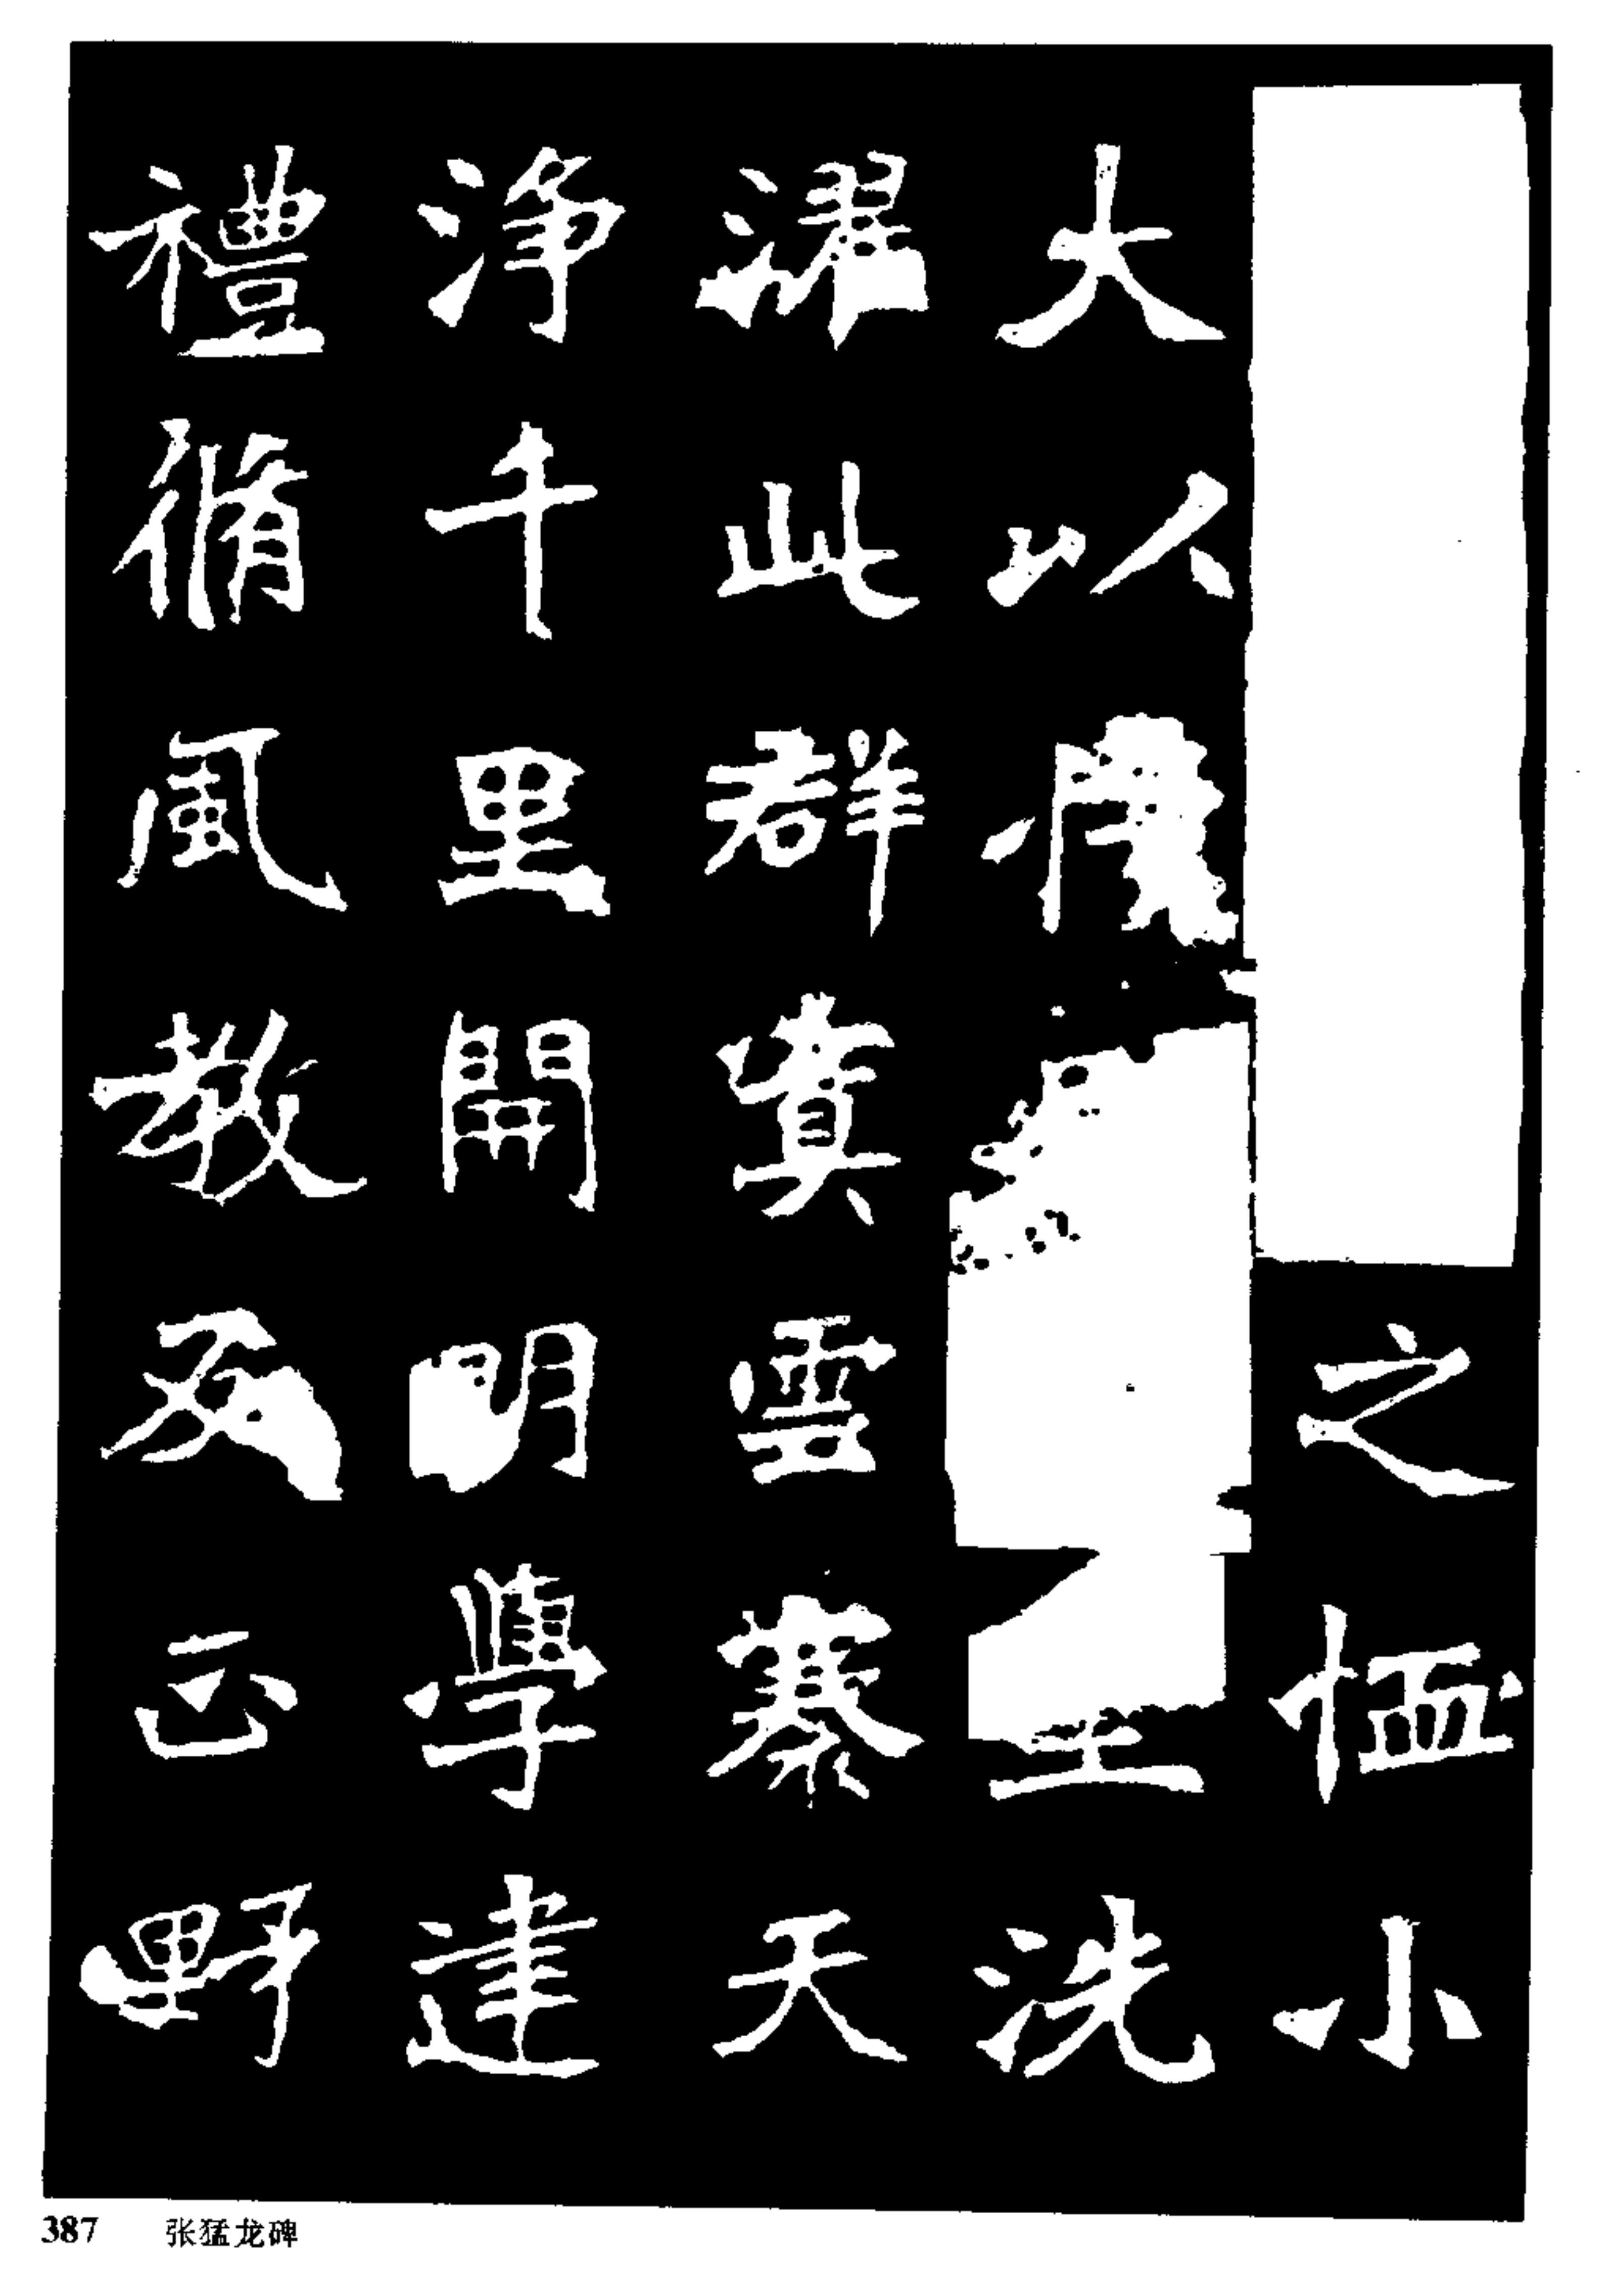 之恤小
大以洗
濯此群冀雲褰天
淨千里開明學建
禮脩風教反正野
387 张猛龙碑